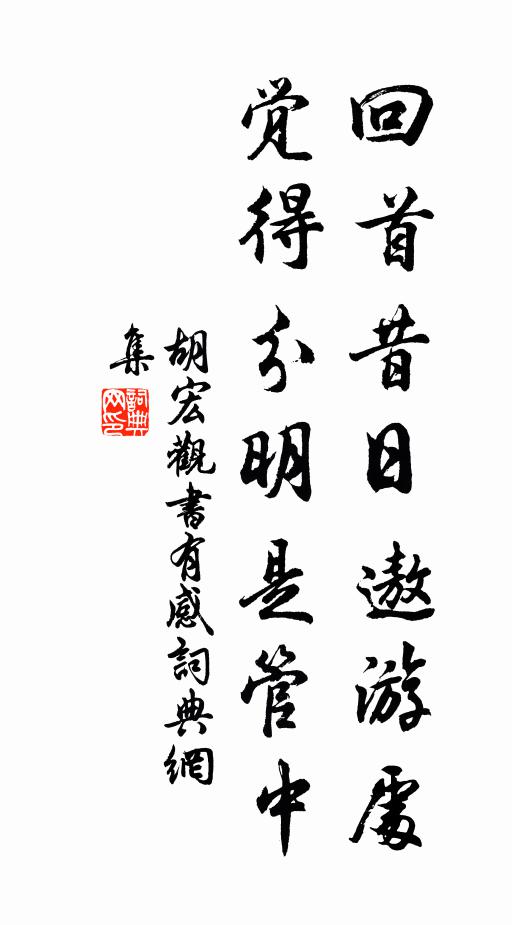 回首昔日遨游處
觉得分明是管中
胡宏觀書有感詞典網
集
詞典网印